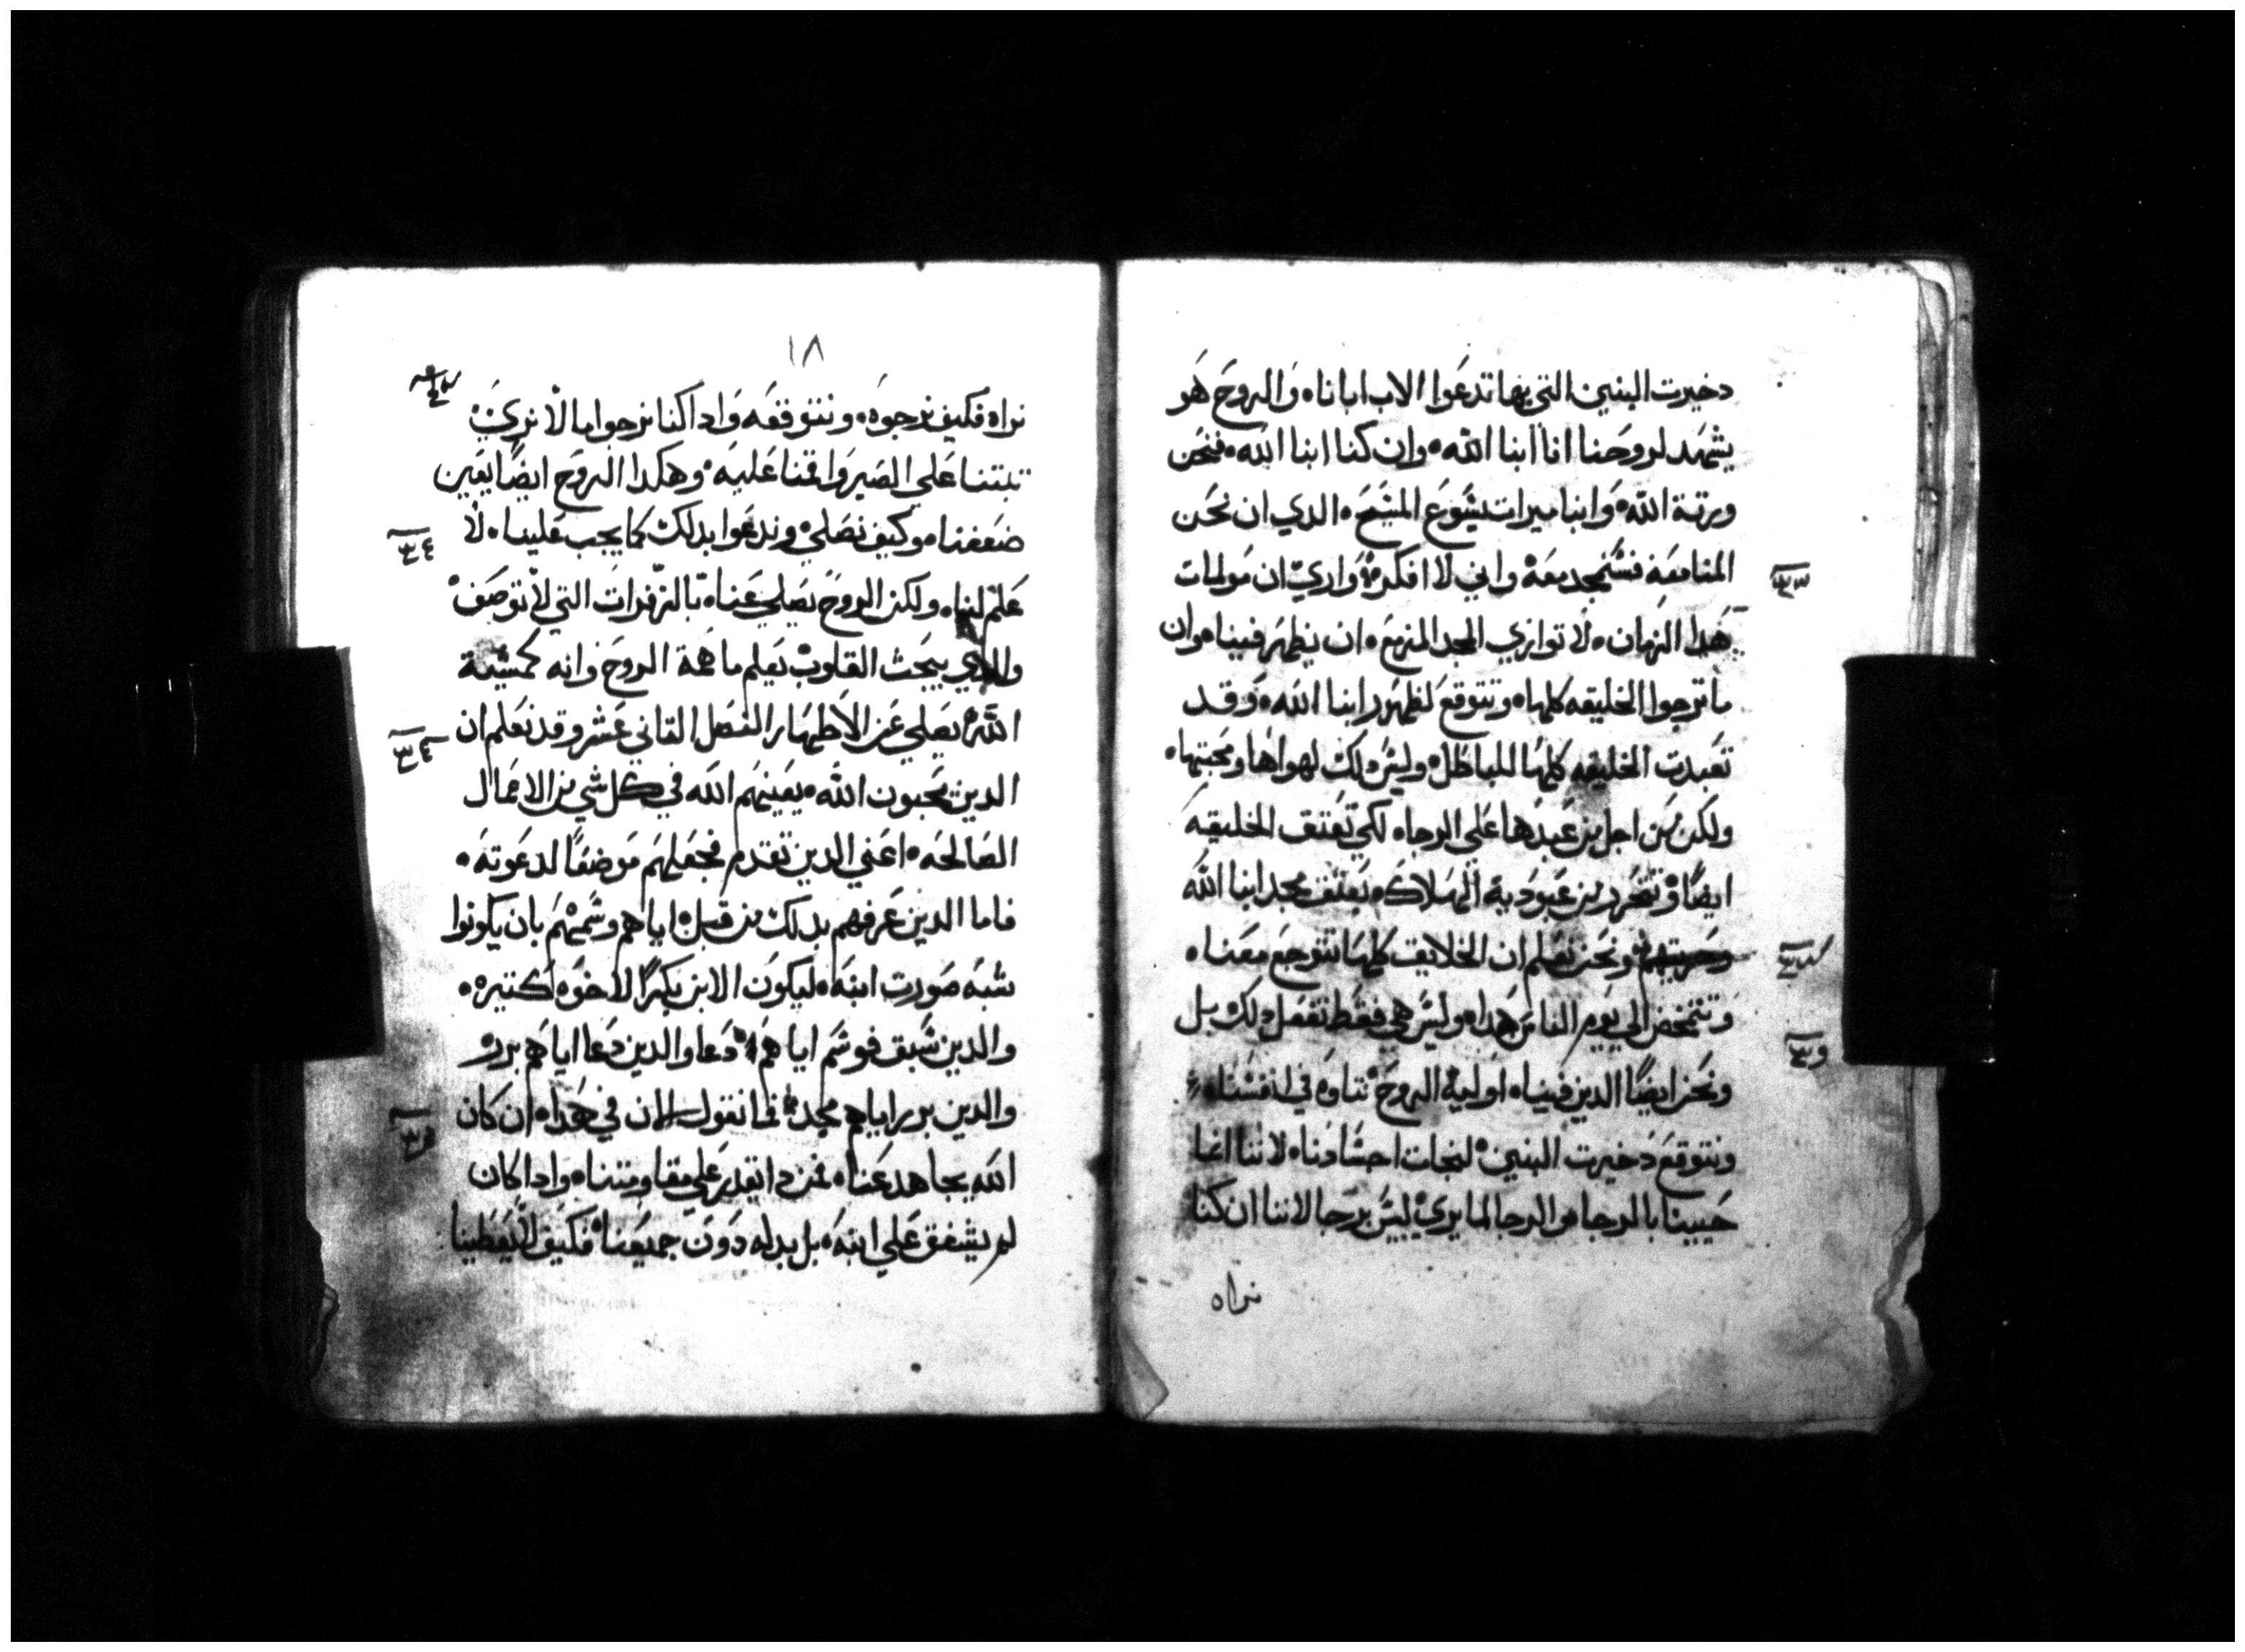 دخيرت البنين التي بها تدعوا الاب ابانا والروح هو
يشهد لروحنا انا ابنا الله وان كنا ابنا الله فنحن
ورتة الله وابنا ميرات يشوع المشيح الدي ان نحن
المنا معه فشنمجد معه واني لا افكر واري ان مولمات
هدا الزمان لا توازي المجد المزمع ان يظهر فينا وان
ما ترجوا الخليقه كلها وتتوقع لظهور ابنا الله وقد
تعبدت الخليقه كلها للباطل وليش دلك لهواها ومحبتها
ولكن من اجل من عبدها على الرجا لكي تعتق الخليقه
ايضا وتتحرر من عبودية الهلاك بعتق مجد ابنا الله
وحريتهم ونحن نعلم ان الخلايق كلها تتوجع معنا
وتتمخض الي يوم الناش هدا وليش هي فقط تفعل دلك بل
ونحن ايضا الدين فينا اولية الروح نتاوه في انفشنا
ونتوقع دخيرت البنين لنجات اجشادنا لاننا انما
حيينا بالرجا والرجا لما يري ليش برجا لاننا ان كنا
نراه
١٨
نراه فكيف نرجوه ونتوقعه وادا كنا نرجوا ما لا نري
تبتنا علي الصبر واقمنا عليه وهكدا الروح ايضا يعين
ضعفنا وكيف نصلي وندعوا بدلك كما يجب علينا لا
علم لنا ولكن الروح يصلي عنا بالزفرات التي لا توصف
والدي يبحث القلوب يعلم ما همة الروح وانه كمشية
الله يصلي عن الاطهار الفصل التاني عشر وقد نعلم ان
الدين يحبون الله يعينهم الله في كل شي من الاعمال
الصالحه اعني الدين تقدم فجعلهم موضعا لدعوته
فاما الدين عرفهم بدلك من قبل اياهم وشمهم بان يكونوا
شبه صورت ابنه ليكون الابن بكرا لاخوه كتيره
والدين شبق فوشم اياهم دعا والدين دعا اياهم برر
والدين برر اياهم مجد فما نقول الان في هدا ان كان
الله يجاهد عنا فمن دا يقدر علي مقاومتنا وادا كان
لم يشفق علي ابنه بل بدله دون جميعنا فكيف لا يعطينا